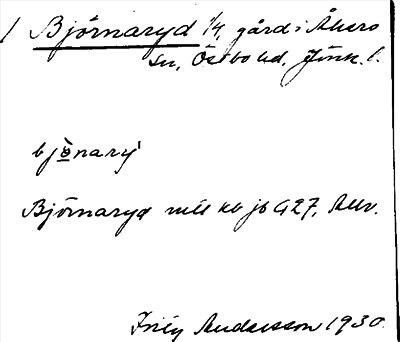 Björnaryd 1/4, gård i Åkers
sn, Östbo hd, Jönk. l.
bjö̀narý
Björnaryd mtl kb jb G27, Allv.
Andersson 1930.